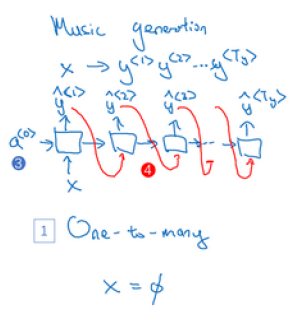 Music generation
x → y<1> y<2> ... y<Ty>
ŷ<1> ŷ<2> ŷ<3> ŷ<Ty>
a<0> → → → → ... →
3 4
x
1 One-to-many
x = ϕ